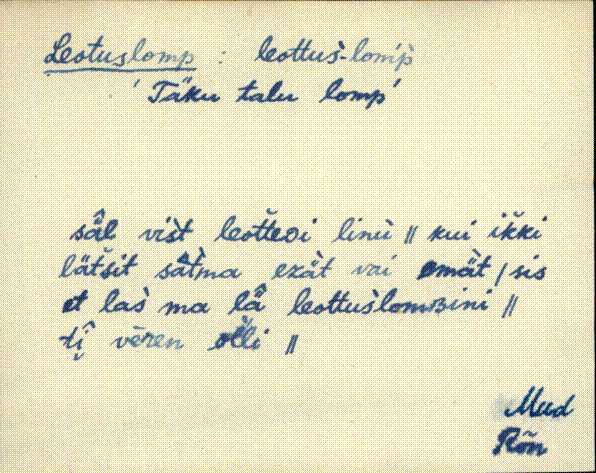 Leotuslomp : leottus̀-lomṕs̀
'Täku talu lomp'
säl vis̀t leotteᴅi linù || kui ikki
lätšit sàtma ezät vai emät / sis
et las̀ ma lâ leottus̀lomʙini ||
tî̬ vèren olli ||
Mud
Rõn